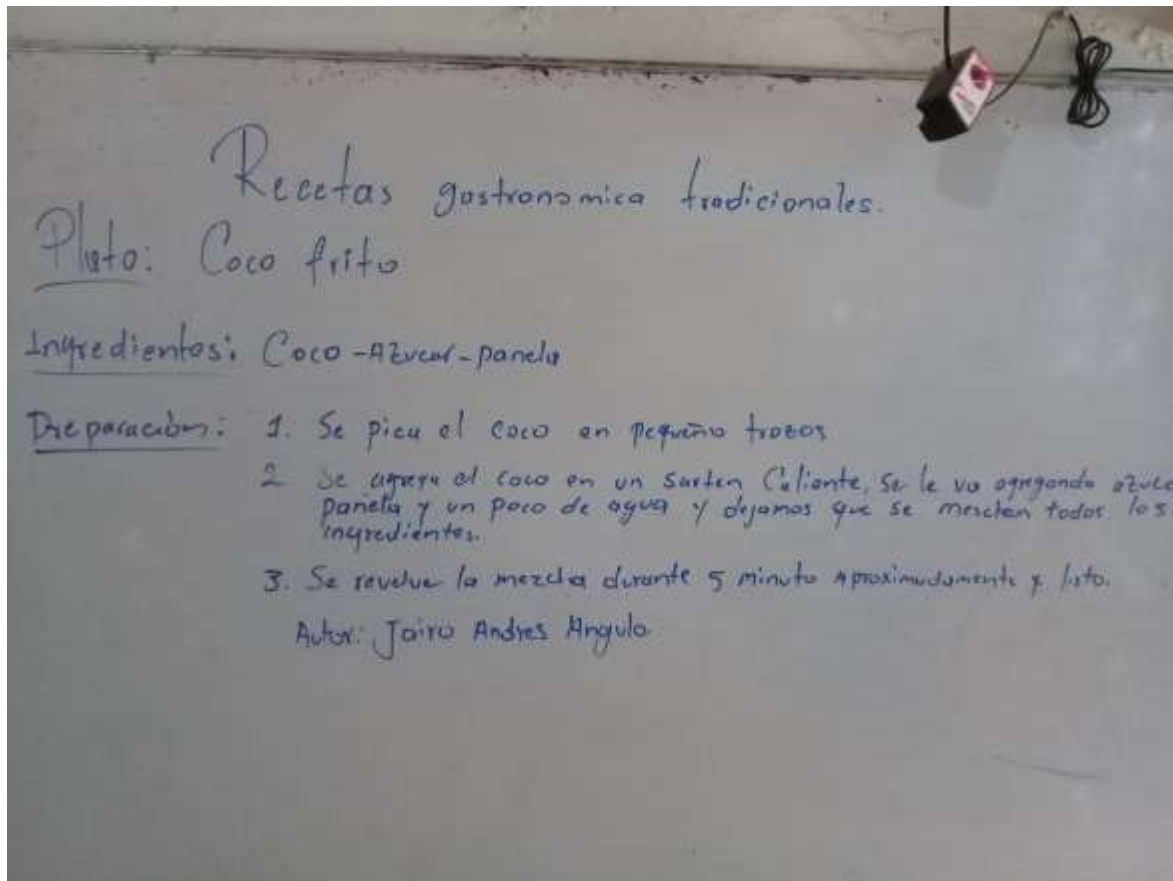 Recetas gastronomica tradicionales.
Plato: Coco frito
Ingredientes: Coco - Azucar - panela
Preparación: 1. Se pica el coco en pequeño trozos
2 Se agrega el coco en un sarten Caliente, se le va agregando azuca
panela y un poco de agua y dejamos que se mesclan todos los
ingredientes.
3. Se revelve la mezcla durante 5 minuto Aproximadamente y listo.
Autor: Jairo Andres Angulo